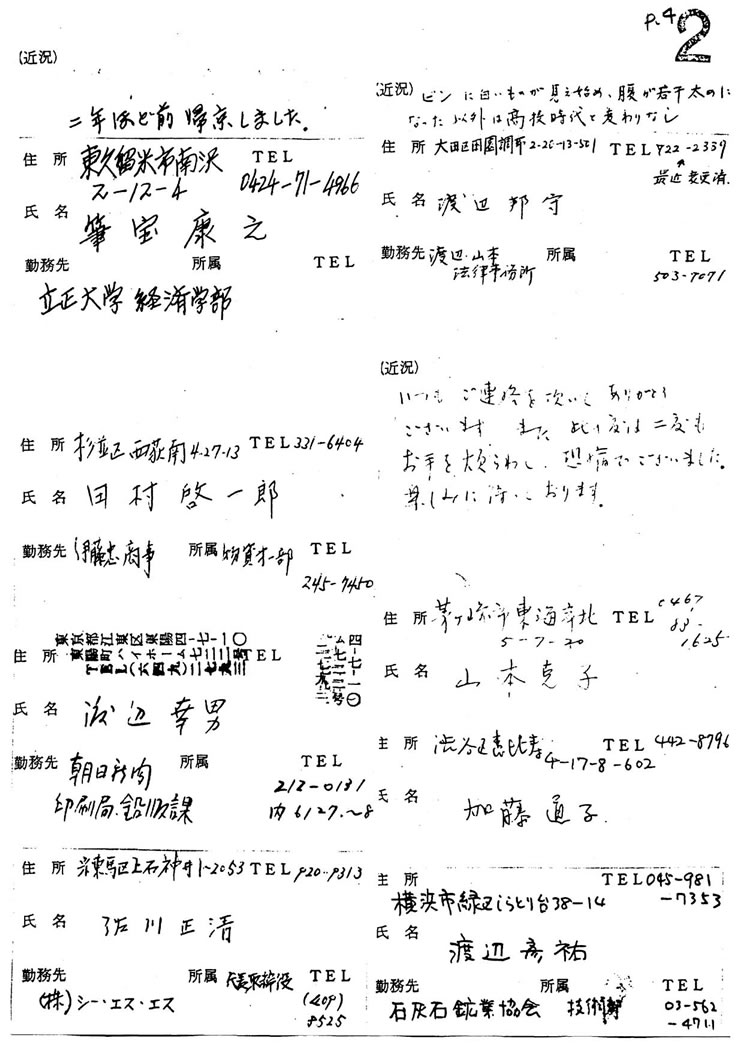 P.4 2
(近況)
二年ほど前 帰京しました。
住所 東久留米市南沢 TEL
2-12-4 0424-71-4966
氏名 筆宝康之
勤務先 所属 TEL
立正大学 経済学部
住所 杉並区西荻南4.27.13 TEL 331-6404
氏名 田村啓一郎
勤務先 伊藤忠商事 所属 物資才一部 TEL
245-7450
東京都江東区東陽四-七-一〇
住所 東陽町ハイホーム七三二号 TEL
TEL(六四九)二七九三
氏名 渡辺幸男
勤務先 朝日新聞 所属 TEL
印刷局 212-0131
内6127.~8
住所 練馬区上石神井1-2053 TEL 920-9313
氏名 佐川正清
勤務先 所属 代表取締役 TEL
(株)シー・エス・エス (409)
8525
(近況) ビンに白いものが見え始め、腹が若干太めに
なった以外は高校時代と変わりなし
住所 大田区田園調布2-20-13-501 TEL 722-2339
最近変更済.
氏名 渡辺邦守
勤務先 渡辺・山本 所属 TEL
法律事務所 503-7071
(近況)
いつもご連絡を頂いてありがとう
ございます また 此の度は二度も
お手を煩らわし、恐縮でございました。
楽しみに待っております。
住所 茅ヶ崎市東海岸北 TEL 0467
5-7-20 83-
1625
氏名 山本克子
住所 渋谷区恵比寿 TEL 442-8796
4-17-8-602
氏名 加藤道子
住所 TEL 045-981
横浜市緑区しらとり台38-14 -7353
氏名 渡辺彦祐
勤務先 所属 TEL
石灰石鉱業協会 技術部 03-562
-4711